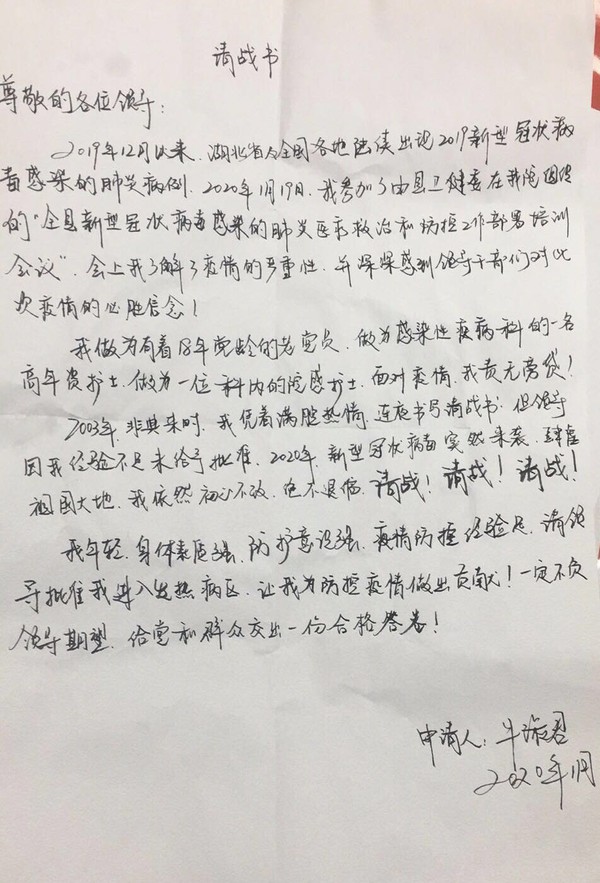 请战书
尊敬的各位领导：
2019年12月以来，湖北省及全国各地陆续出现2019新型冠状病
毒感染的肺炎病例，2020年1月19日，我参加了由县卫健委在我院组织
的“全县新型冠状病毒感染的肺炎医疗救治和防控工作部署培训
会议”，会上我了解了疫情的严重性，并深深感到领导干部们对此
次疫情的必胜信念！
我做为有着18年党龄的老党员，做为感染性疾病科的一名
高年资护士，做为一位科内的院感护士，面对疫情，我责无旁贷！
2003年，非典来时，我凭着满腔热情，连夜书写请战书，但领导
因我经验不足未给予批准，2020年，新型冠状病毒突然来袭，肆虐
祖国大地，我依然初心不改，绝不退缩，请战！请战！请战！
我年轻，身体素质强，防护意识强，疫情防控经验足，请领
导批准我进入发热病区，让我为防控疫情做出贡献！一定不负
领导期望，给党和群众交出一份合格答卷！
申请人：牛 君
2020年1月